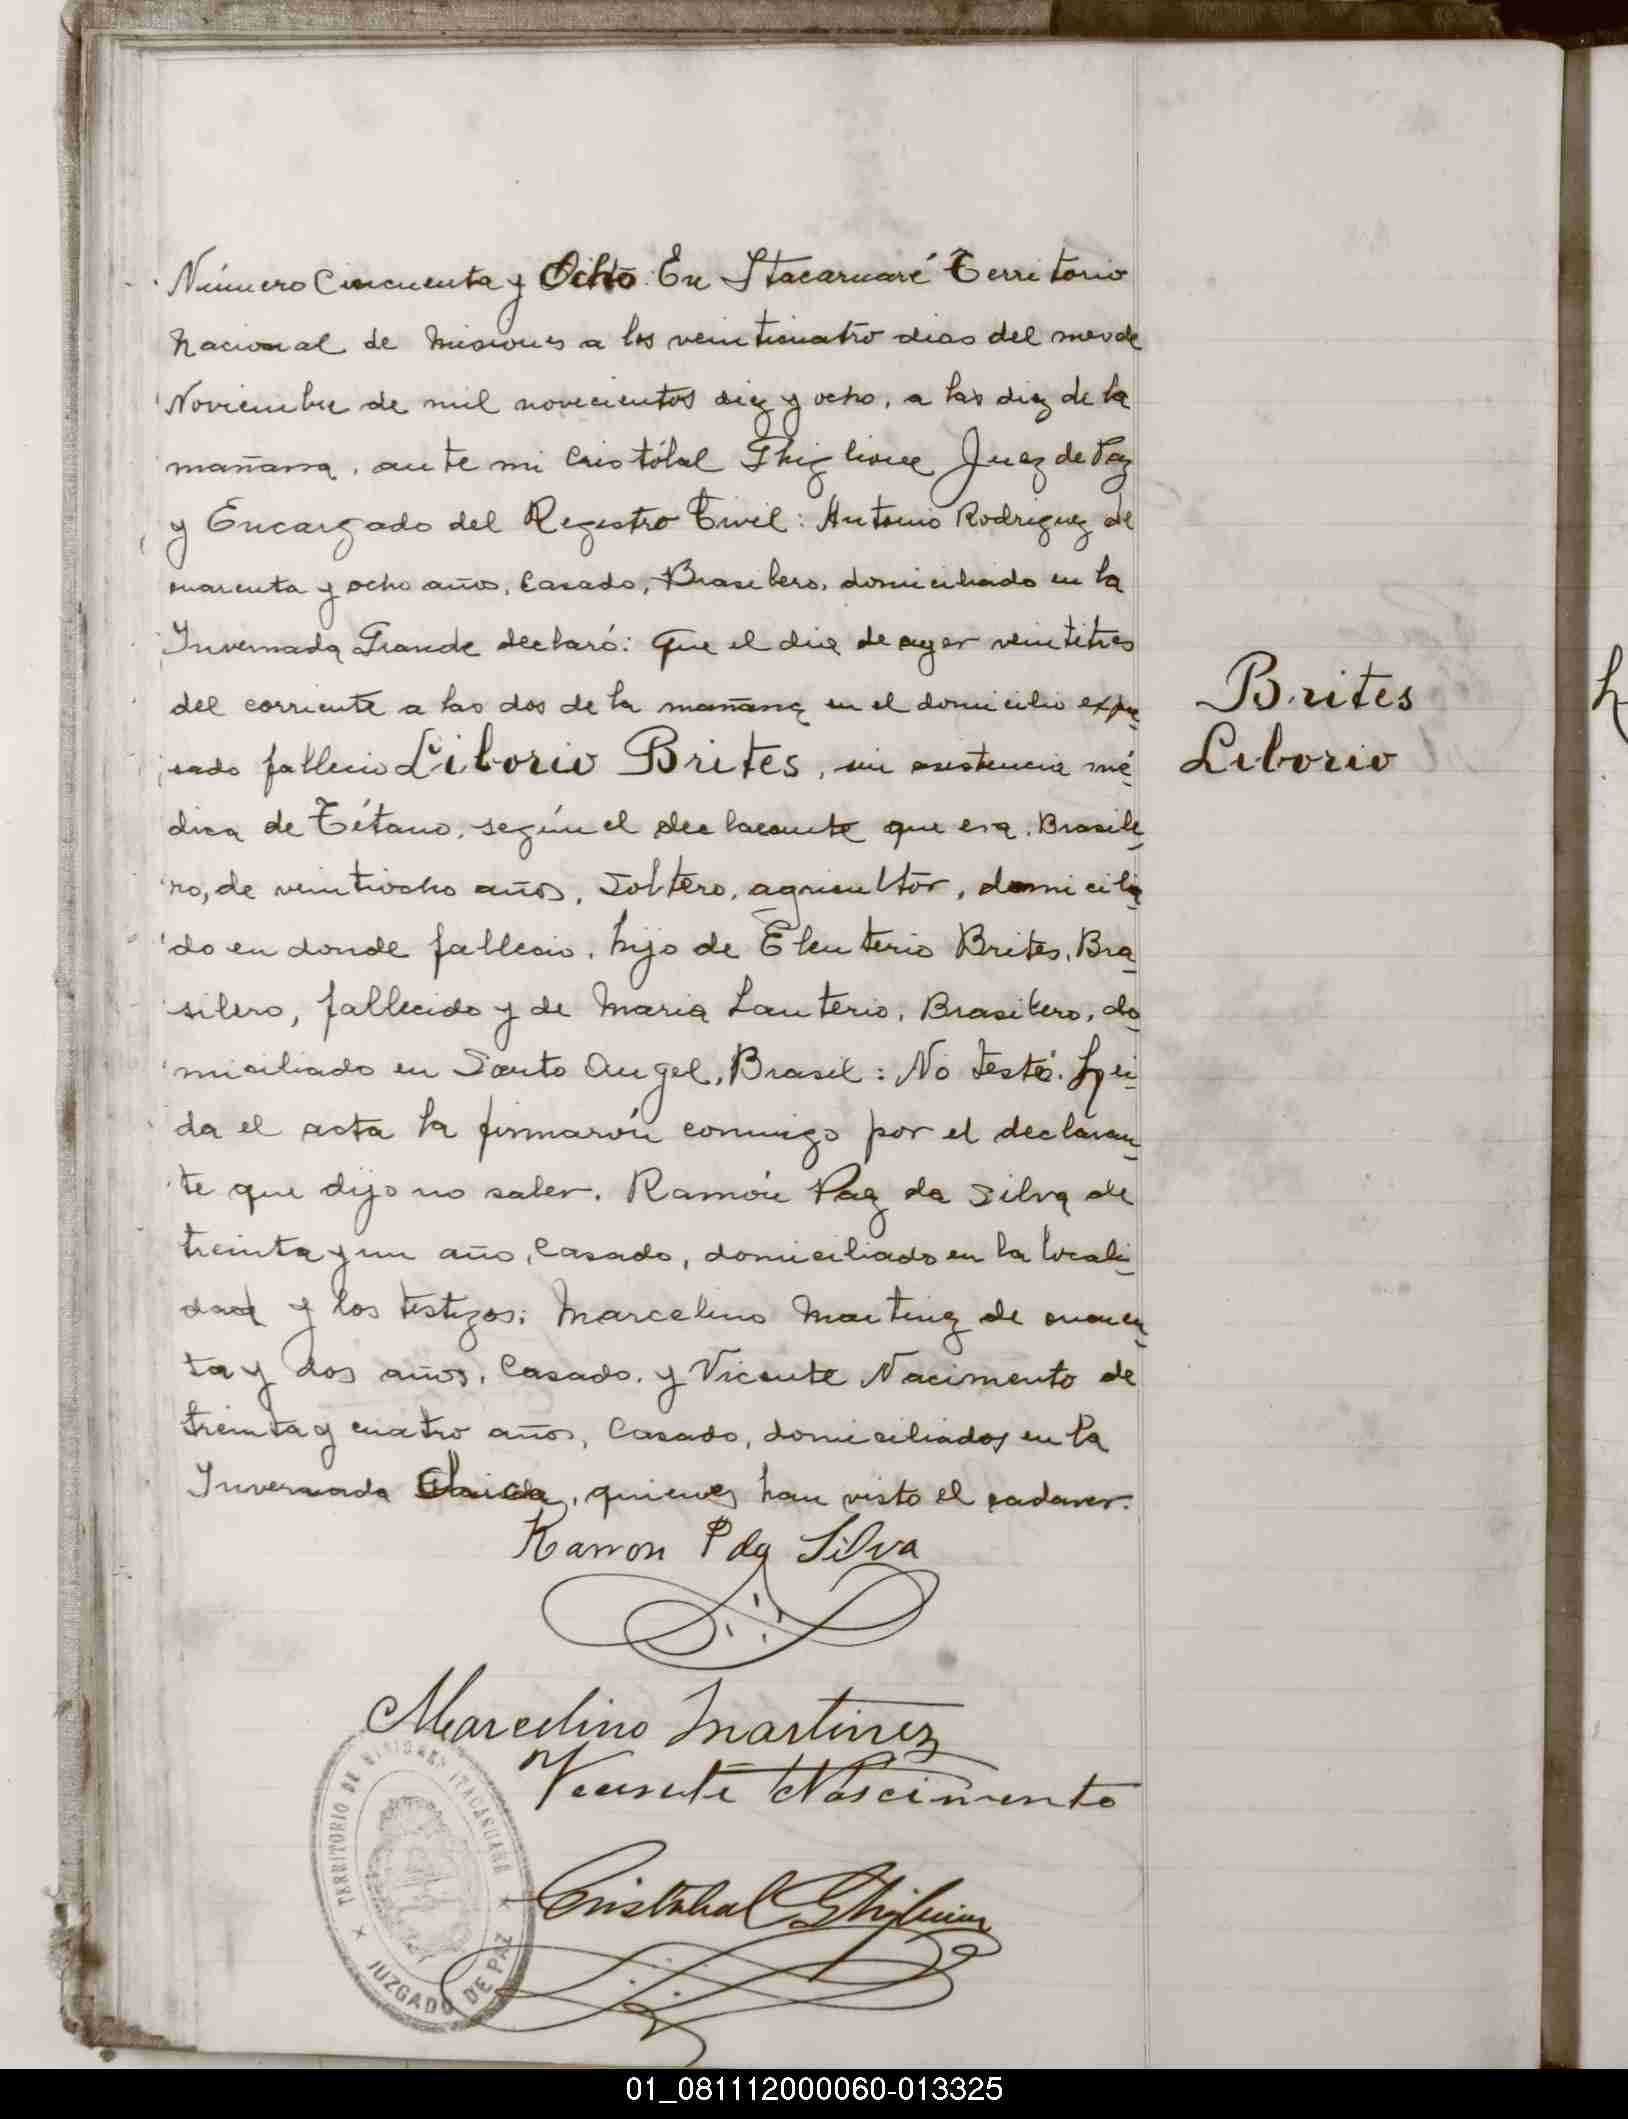 Número Cincuenta y Ocho. En Itacaruaré Territorio
Nacional de Misiones a los veinticuatro dias del mes de
Noviembre de mil novecientos diez y ocho, a las diez de la
mañana, ante mi Cristóbal Ghiglione Juez de Paz
y Encargado del Registro Civil: Antonio Rodriguez de
cuarenta y ocho años, Casado, Brasilero, domiciliado en la
Invernada Grande declaró: Que el dia de ayer veintitres
del corriente a las dos de la mañana en el domicilio expre-
sado fallecio Liborio Brites, sin asistencia mé-
dica de Tétano, según el declarante que era, Brasile-
ro, de veintiocho años, Soltero, agricultor, domicilia-
do en donde fallecio, hijo de Eleuterio Brites, Bra-
silero, fallecido y de Maria Lauterio, Brasilero, do-
miciliado en Santo Angel, Brasil: No testó. Lei-
da el acta la firmarón conmigo por el declaran-
te que dijo no saber, Ramón Paz da Silva de
treinta y un año, Casado, domiciliado en la locali-
dad y los testigos: Marcelino Martinez de cuaren-
ta y dos años, Casado, y Vicente Nacimento de
treinta y cuatro años, Casado, domiciliados en la
Invernada Chica, quienes han visto el cadaver.
Brites
Liborio
Ramon P da Silva
Marcelino Martinez
Vicente Nascimento
Cristobal Ghiglione
TERRITORIO DE MISIONES ITACARUARE
JUZGADO DE PAZ
01_081112000060-013325